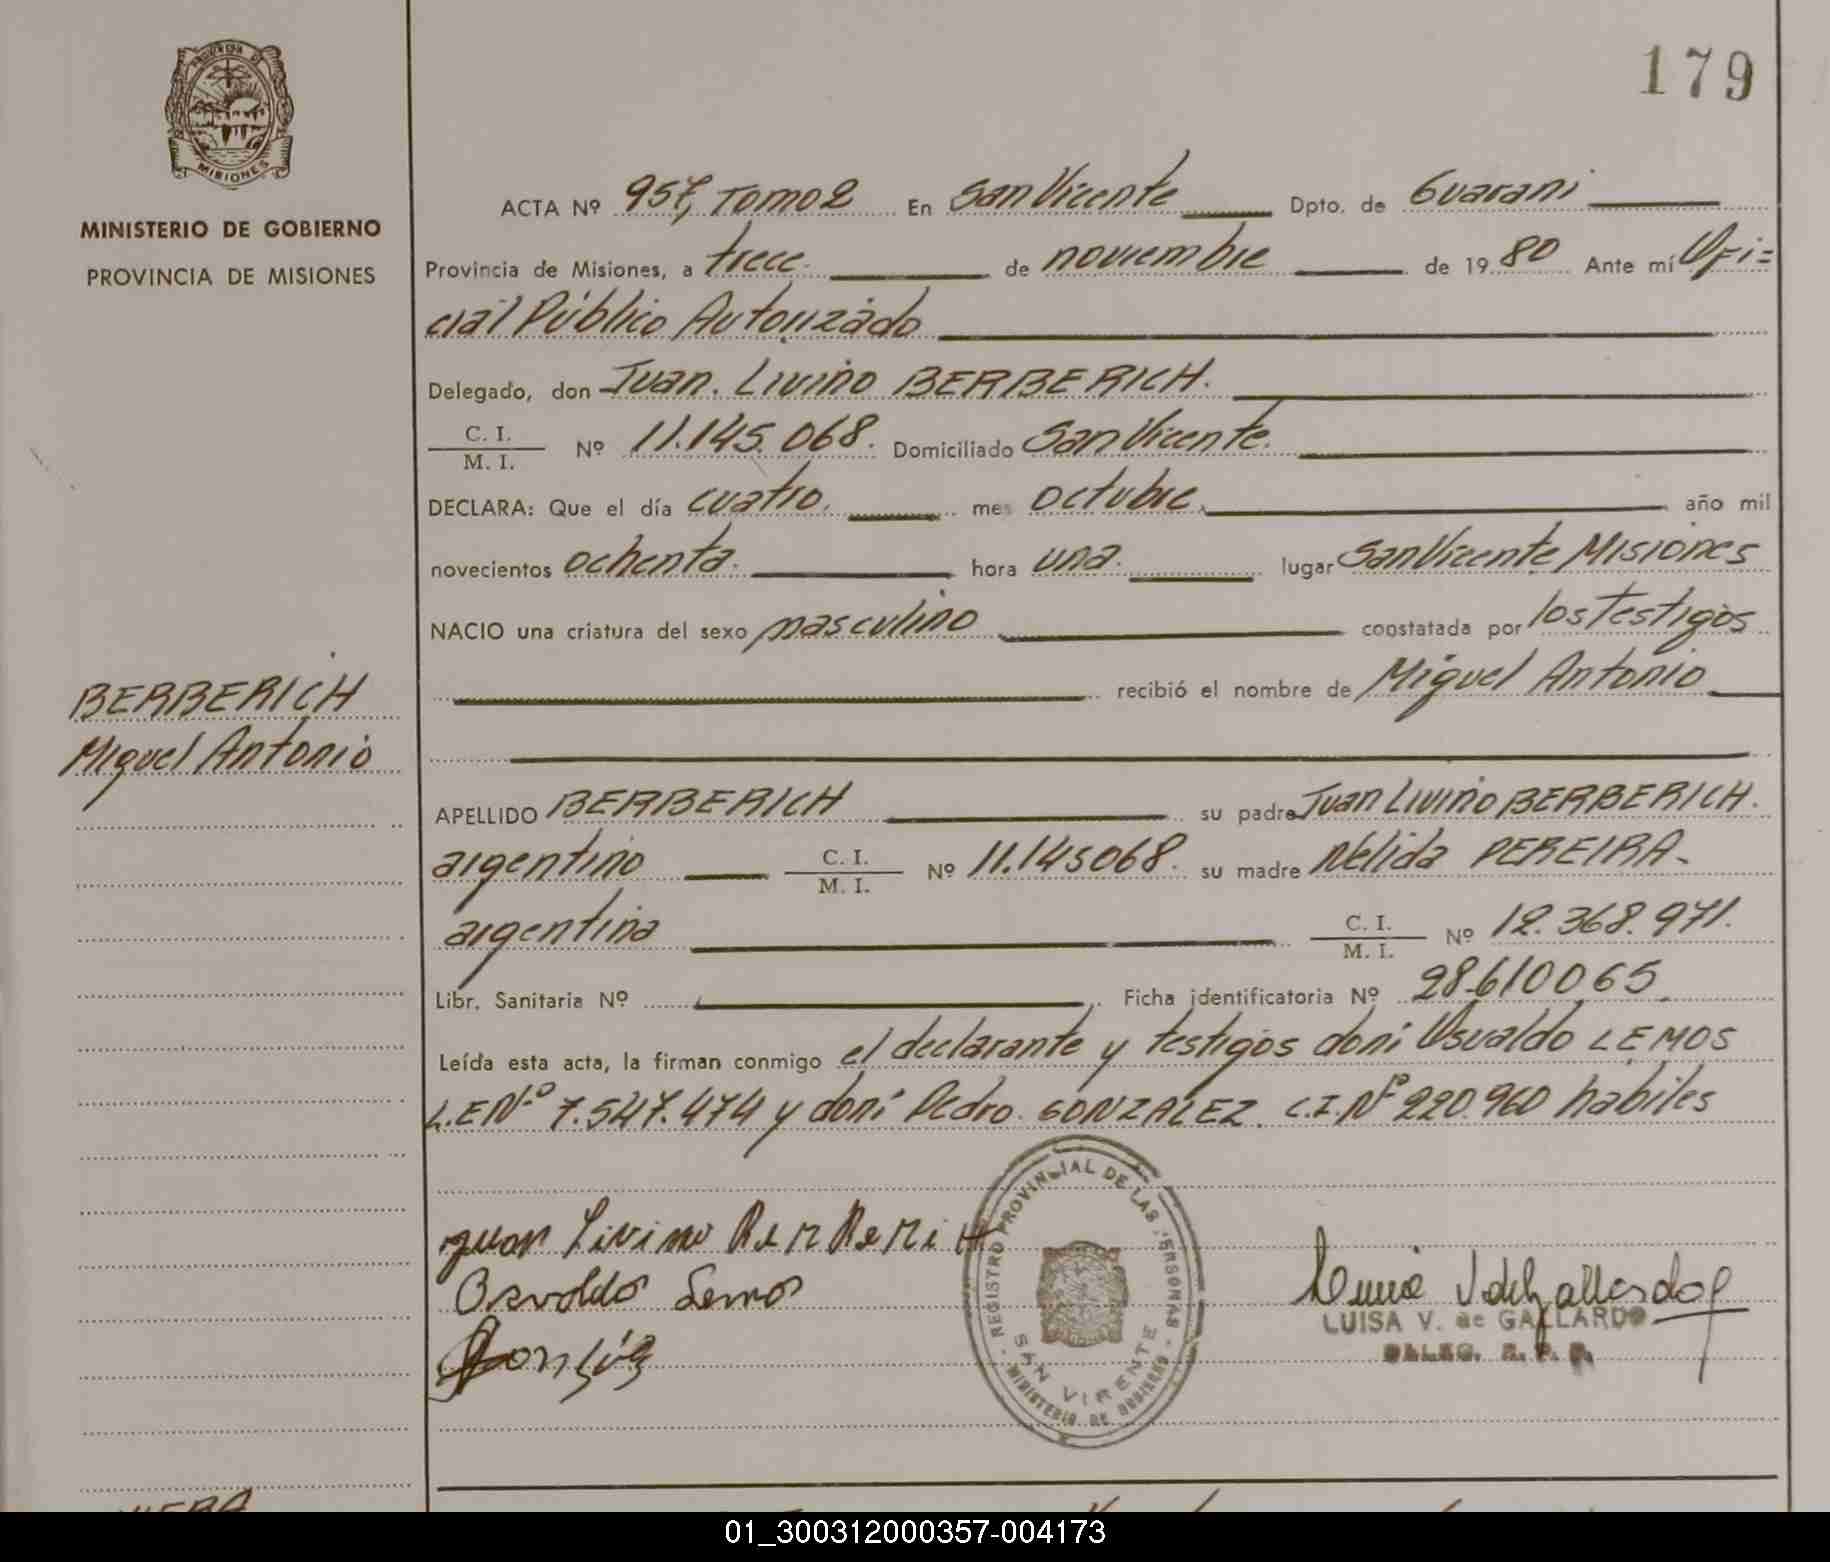 PROVINCIA DE
MISIONES
MINISTERIO DE GOBIERNO
PROVINCIA DE MISIONES
179
ACTA Nº 957, Tomo 2 En San Vicente Dpto. de Guarani
Provincia de Misiones, a trece de noviembre de 19 80 Ante mí Ofi=
cial Público Autorizado
Delegado, don Juan Livino BERBERICH.
C. I.
M. I. Nº 11.145.068. Domiciliado San Vicente.
DECLARA: Que el día cuatro. mes octubre año mil
novecientos ochenta. hora una. lugar San Vicente Misiones
NACIO una criatura del sexo masculino constatada por los Testigos
recibió el nombre de Miguel Antonio
BERBERICH
Miguel Antonio
APELLIDO BERBERICH su padre Juan Livino BERBERICH.
argentino C. I.
M. I. Nº 11.145068. su madre Nélida PEREIRA-
argentina C. I.
M. I. Nº 12.368.971.
Libr. Sanitaria Nº Ficha identificatoria Nº 28.610065
Leída esta acta, la firman conmigo el declarante y testigos doni Osvaldo LEMOS
L.E Nº 7.547.474 y doni Pedro GONZALEZ. C.I. Nº 220.960 habiles
Juan Livino BerBeriH
Osvaldo Lemos
REGISTRO PROVINCIAL DE LAS PERSONAS
SAN VICENTE
MINISTERIO DE GOBIERNO
LUISA V. de GALLARDO
DELEG. R. P. P.
01_300312000357-004173